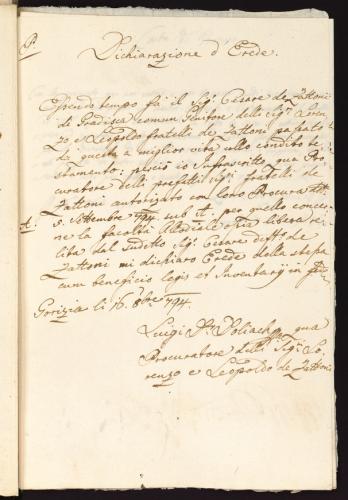 P.
Dichiarazione d'Erede.
Essendo tempo fà il Sigr Cesare de Zattoni
di Gradisca comun Genitore delli Sigri Loren-
zo e Leopoldo fratelli de Zattoni passato
da questa a miglior vita ullo condito te-
stamento: perciò io Infrascritto qua Pro-
curatore delli prefatti Sigri fratelli de
Zattoni autorizato con loro Procura
A. 5. Settembre 794. sub A. per quello conce-
ne la facoltà Allodiale ossia libera re-
lita dal sudetto Sigr Cesare de
Zattoni mi dichiaro Erede della stessa
cum beneficio legis et Inventarij in
Gorizia li 16. 8bre 794.
Luigi Poliach qua
Procuratore delli Sigri Lo-
renzo e Leopoldo de Zattoni